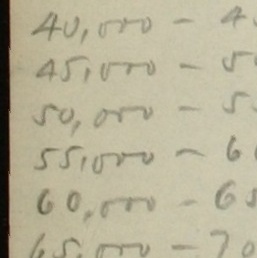 40,000 - 4
45,000 - 5
50,000 - 5
55,000 - 6
60,000 - 65
65,000 - 70